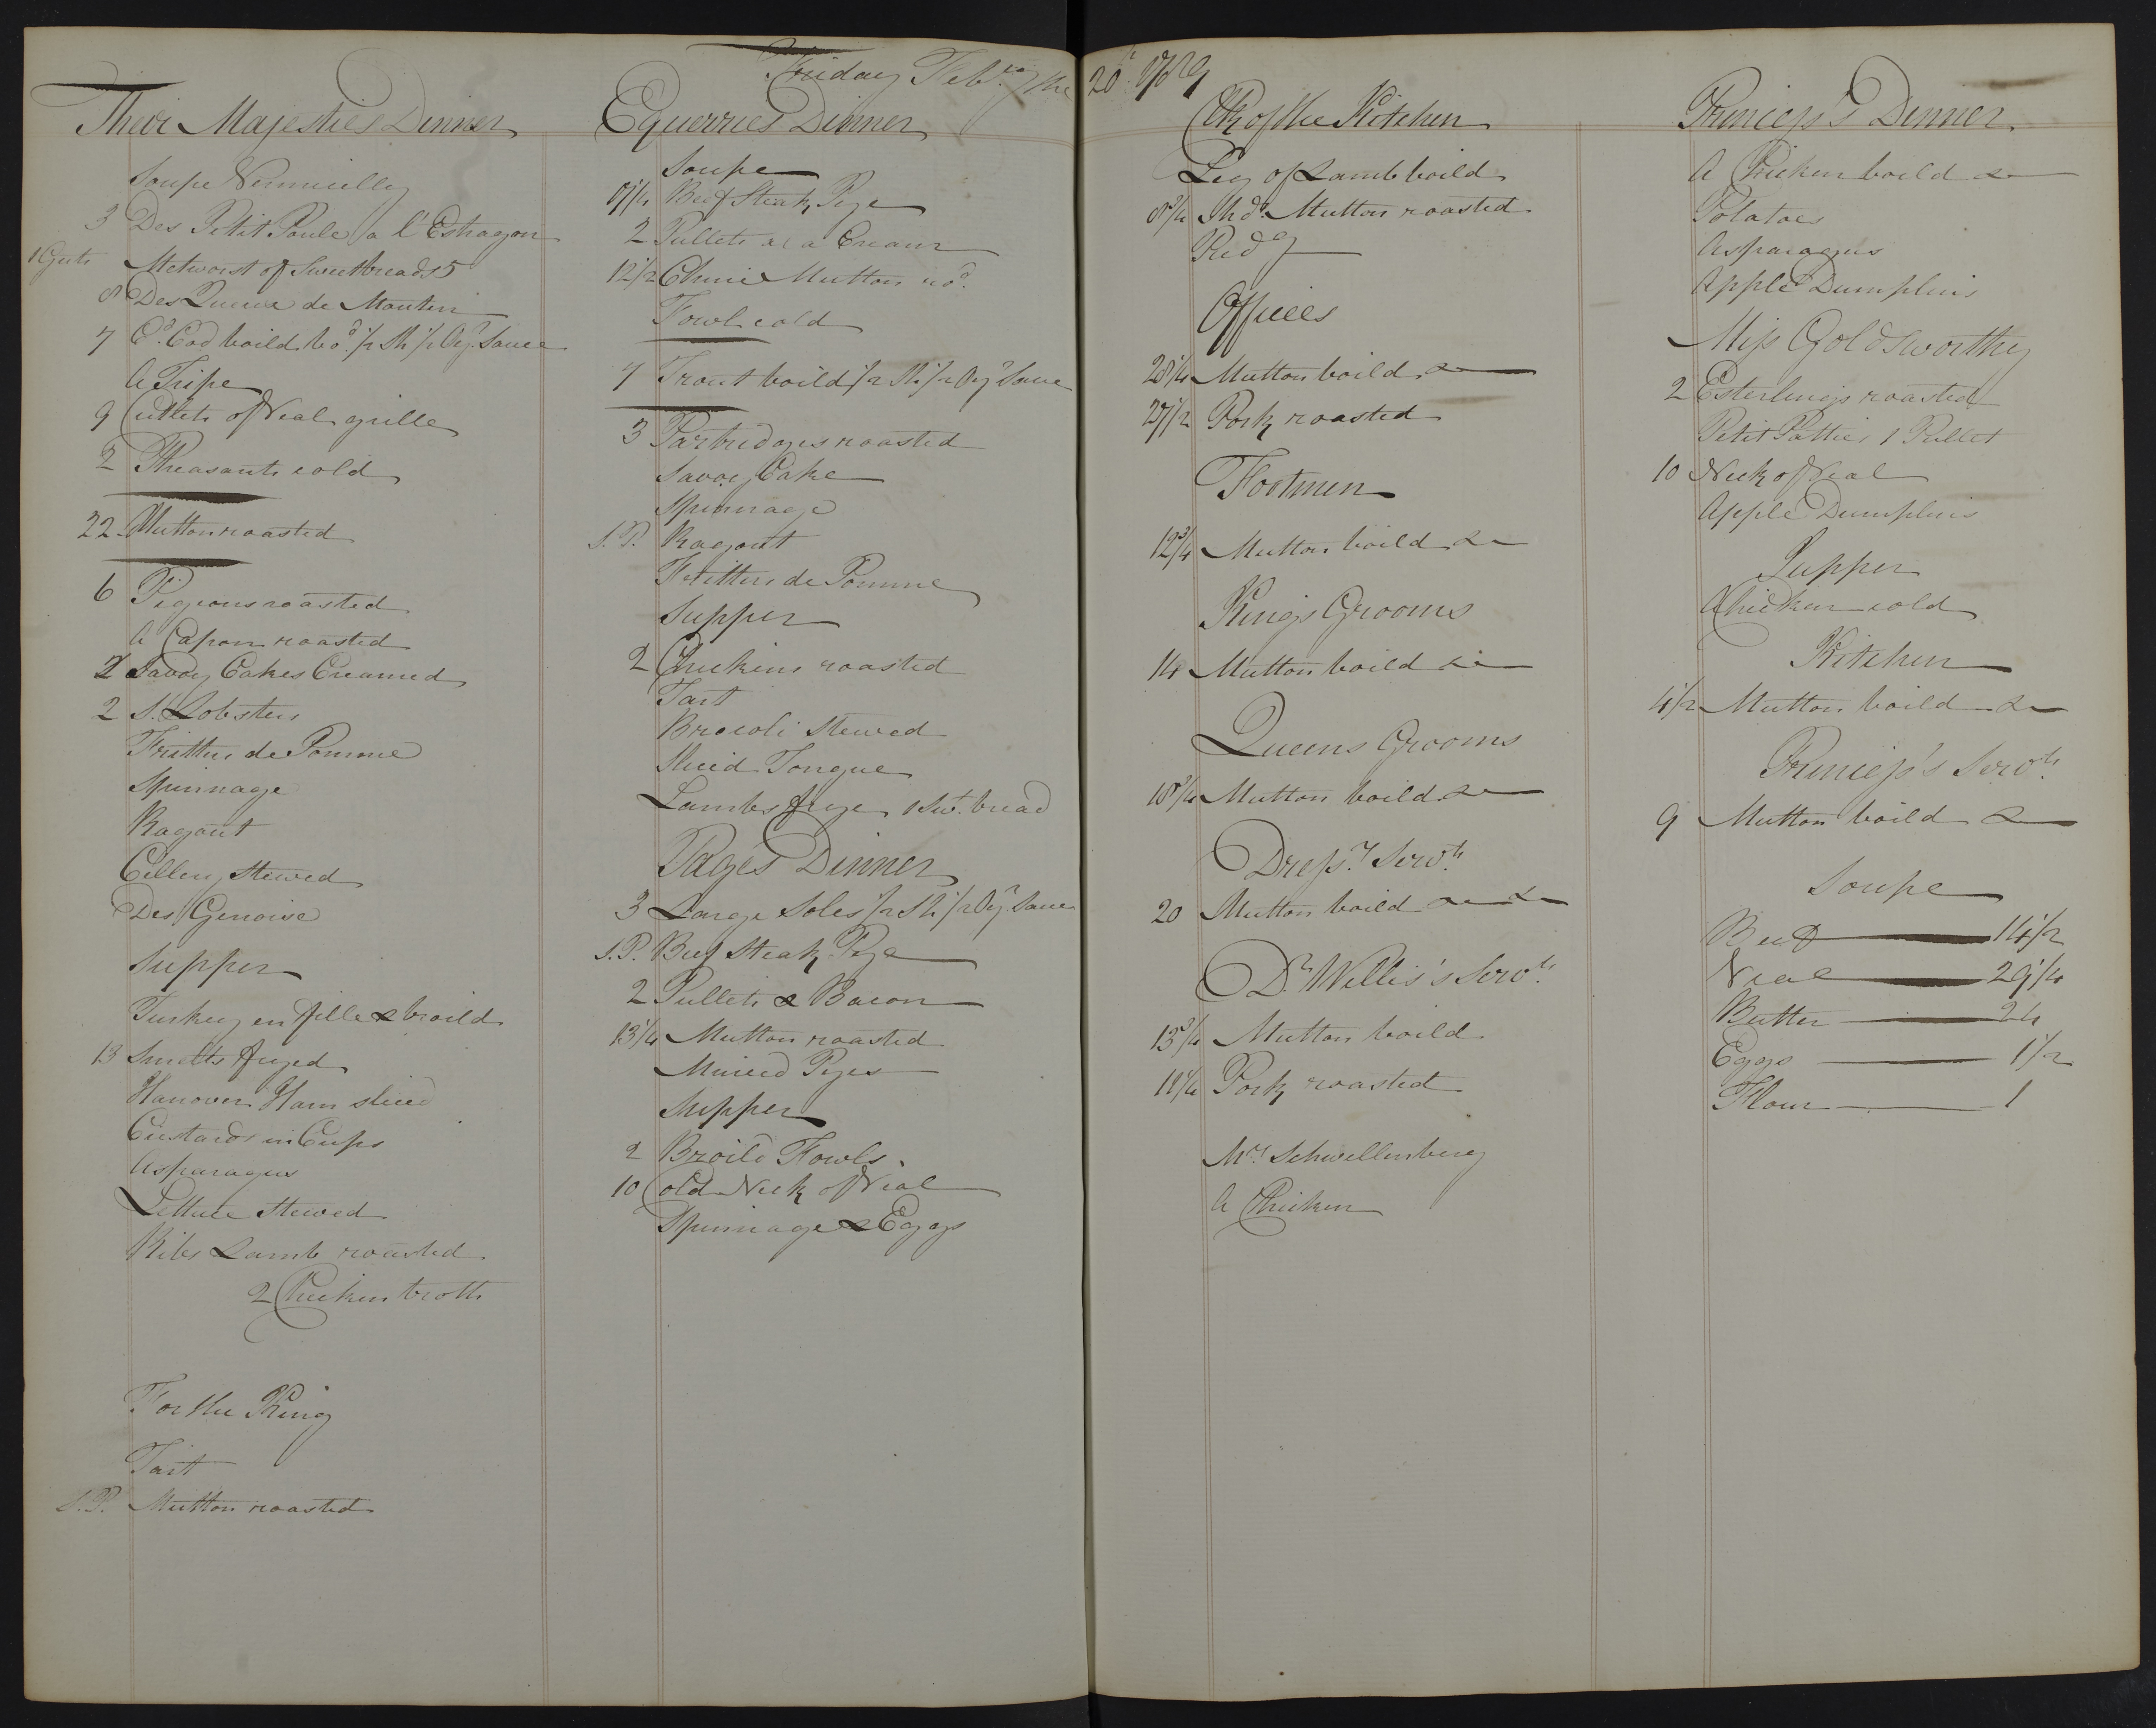 Friday Feb.ry the 20.th 1789
Their Majesties Dinner
Soupe Vermicelly
3 Des Petit Poule a l'Estragon
Metworst of Sweetbreads 5
8 Des Queue de Mouton
7 C.d Cod boild 1/2 Sh 1/2 Oy.r Sauce
A Tripe
9 Cutlets of Veal grille
2 Pheasants cold
22 Mutton roasted
6 Pigeons roasted
A Capon roasted
2 Savoy Cakes Creamed
2 S. Lobsters
Fritters de Pomme
Spinnage
Ragout
Cellery Stewed
Des Genoise
Supper
Turkey en fille & broild
13 Smelts fryed
Hanover Ham sliced
Custards in Cups
Asparagus
Lettuce Stewed
Ribs Lamb roasted
2 Chicken broth
For the King
Tart
S.P. Mutton roasted
Equerries Dinner
Soupe
Beef Steak Pye
2 Pullets a la Cream
12 1/2 Chine Mutton ro.d
Fowl cold
4 Trout boild 1/2 Sh 1/2 Oy.r Sauce
3 Partridges roasted
Savoy Cake
Spinnage
S.P. Ragout
Fritters de Pomme
Supper
2 Chickens roasted
Tart
Brocoli Stewed
Sliced Tongue
Lambs frye 1 Sw.t bread
Pages Dinner
3 Large Soles 1/2 Sh 1/2 Oy.r Sauce
S.P. Beef Steak Pye
2 Pullets & Bacon
13 1/4 Mutton roasted
Minced Pyes
Supper
2 Broild Fowls
10 Cold Neck of Veal
Spinnage & Eggs
Clk of the Kitchen
Leg of Lamb boild
8 3/4 Sh.d Mutton roasted
Pud.g
Offices
28 1/4 Mutton boild &
27 1/2 Pork roasted
Footmen
12 3/4 Mutton boild &
Kings Grooms
14 Mutton boild &
Queens Grooms
18 3/4 Mutton boild &
Dress.rs Serv.ts
20 Mutton boild &
D.r Willis's Serv.ts
13 3/4 Mutton boild
Pork roasted
M.rs Schwellenberg
A Chicken
Princess's Dinner
A Chicken boild &
Potatoes
Asparagus
Apple Dumplins
Miss Goldsworthy
2 Esterlings roasted
Petit Patties 1 Pullet
10 Neck of Veal
Apple Dumplins
Supper
Chicken cold
Kitchen
4 1/2 Mutton boild &
Princess's Serv.ts
9 Mutton boild &
Soupe
Beef 14 1/2
Veal 29 1/4
Butter 24
Eggs 1 1/2
Flour 1